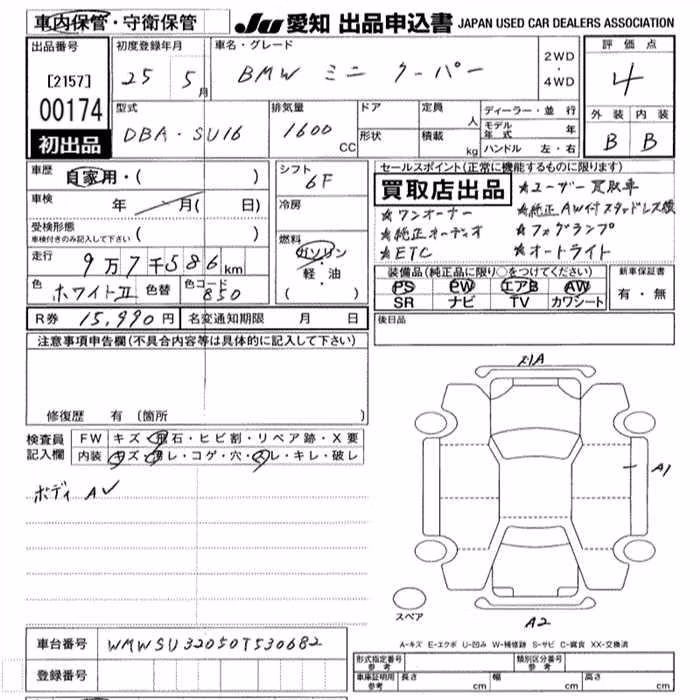 車内保管・守衛保管 JU 愛知 出品申込書 JAPAN USED CAR DEALERS ASSOCIATION
出品番号
[2157]
00174
初出品
初度登録年月
25 5月
車名・グレード
BMW ミニ クーパー
2WD
・
4WD
評価点
4
外装 内装
B B
型式
DBA・SU16
排気量
1600 CC
ドア
形状
定員 人
積載 kg
ディーラー・並行
モデル年式 年
ハンドル 左・右
車歴
自家用・( )
車検 年 月( 日)
受検形態
車検付きのみ記入して下さい( )
走行
9万7千586km
色 ホワイトII 色替 色コード 850
シフト
6F
冷房
燃料
ガソリン
・
軽・油
( )
R券 15,990円 名変通知期限 月 日
セールスポイント(正常に機能するものに限ります)
買取店出品
★ユーザー買取車
★ワンオーナー ★純正AW付スタッドレス積
★純正オーディオ ★フォグランプ
★ETC ★オートライト
装備品(純正品に限り○をつけてください)
PS PW エアB AW
SR ナビ TV カワシート
新車保証書
有・無
後日品
注意事項申告欄(不具合内容等は具体的に記入して下さい)
修復歴 有(箇所 )
検査員記入欄
FW キズ・飛石・ヒビ割・リペア跡・X要
内装 キズ・汚レ・コゲ・穴・スレ・キレ・破レ
ボディ A✓
A1
A2
スペア
A-キズ E-エクボ U-凹み W-補修跡 S-サビ C-腐食 XX-交換済
車台番号 WMWSU32050T530682
登録番号
形式指定番号 参考 類別区分番号 参考
車庫証明用 参考 長さ cm 幅 cm 高さ cm